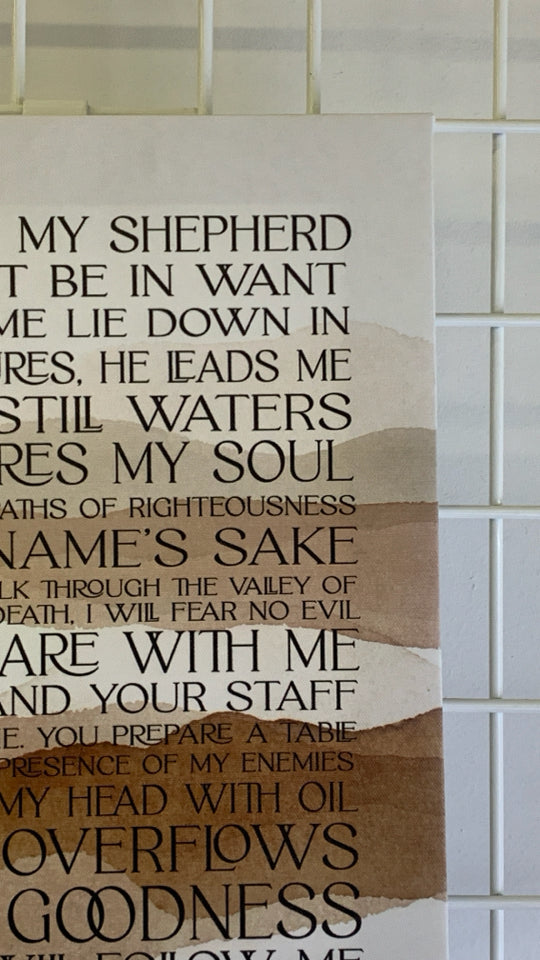 MY SHEPHERD
T BE IN WANT
ME LIE DOWN IN
URES, HE LEADS ME
STILL WATERS
RES MY SOUL
PATHS OF RIGHTEOUSNESS
NAME'S SAKE
LK THROUGH THE VALLEY OF
DEATH, I WILL FEAR NO EVIL
ARE WITH ME
AND YOUR STAFF
E. YOU PREPARE A TABLE
PRESENCE OF MY ENEMIES
MY HEAD WITH OIL
OVERFLOWS
GOODNESS
WILL FOLLOW ME